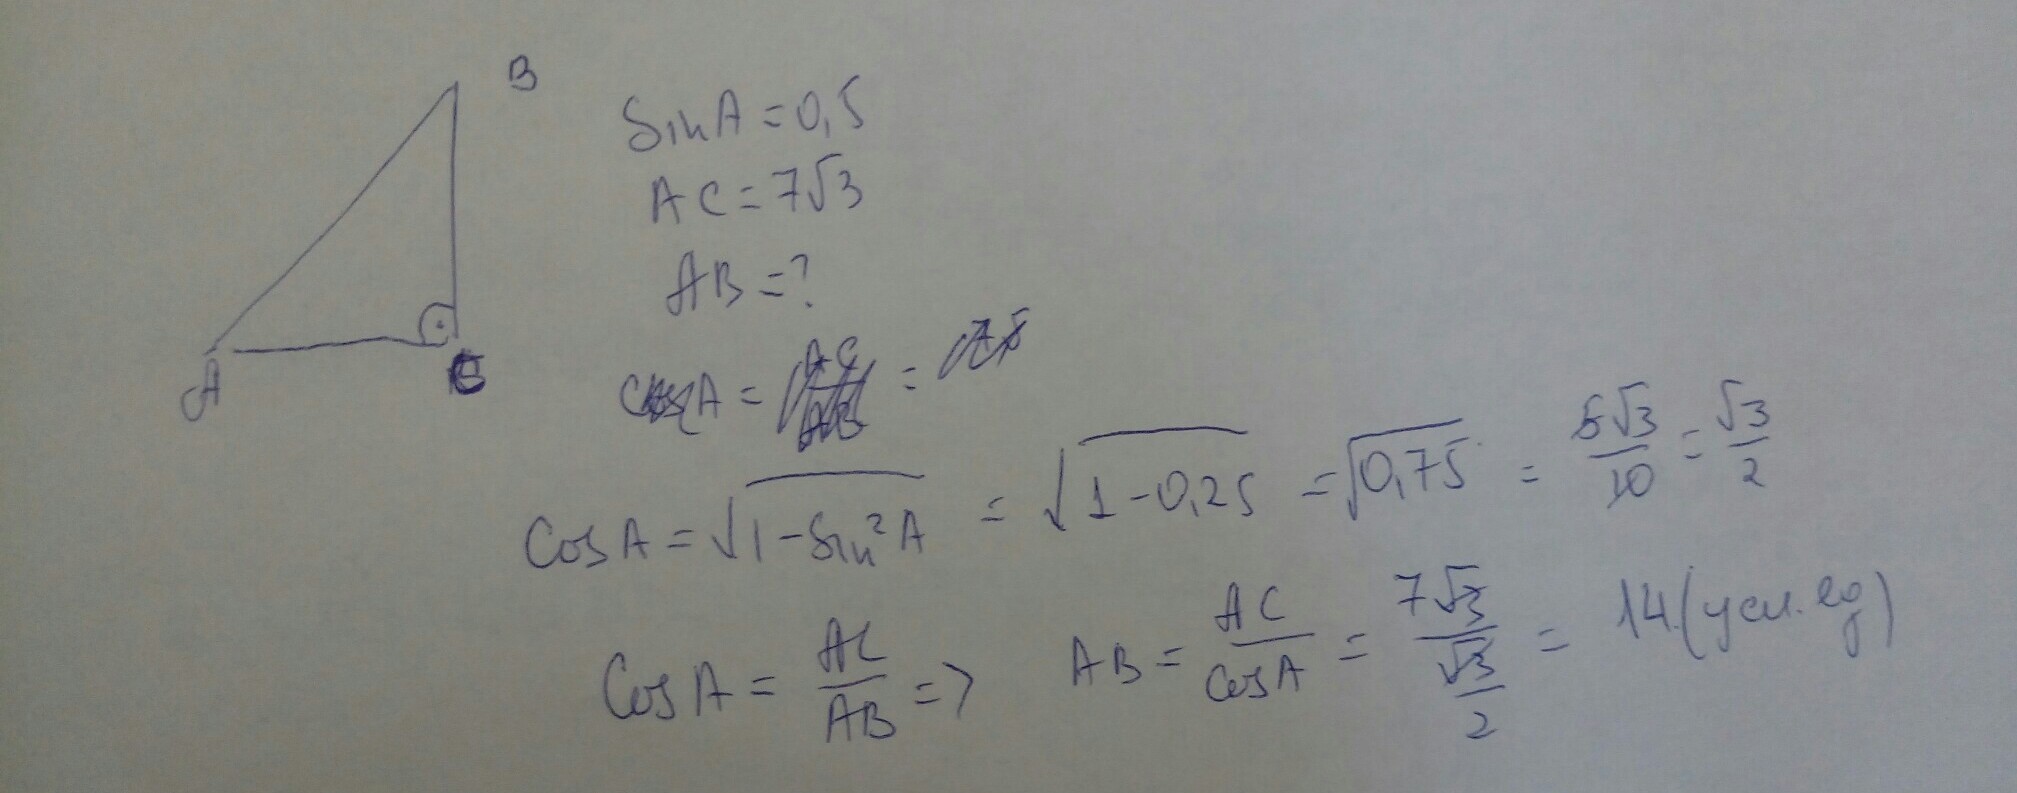 B
A
C
SinA = 0,5
AC = 7√3
AB = ?
CosA = AC/AB =
CosA = √(1-Sin²A) = √(1-0,25) = √0,75 = 5√3/10 = √3/2
CosA = AC/AB => AB = AC/CosA = 7√3/(√3/2) = 14 (усл. ед)